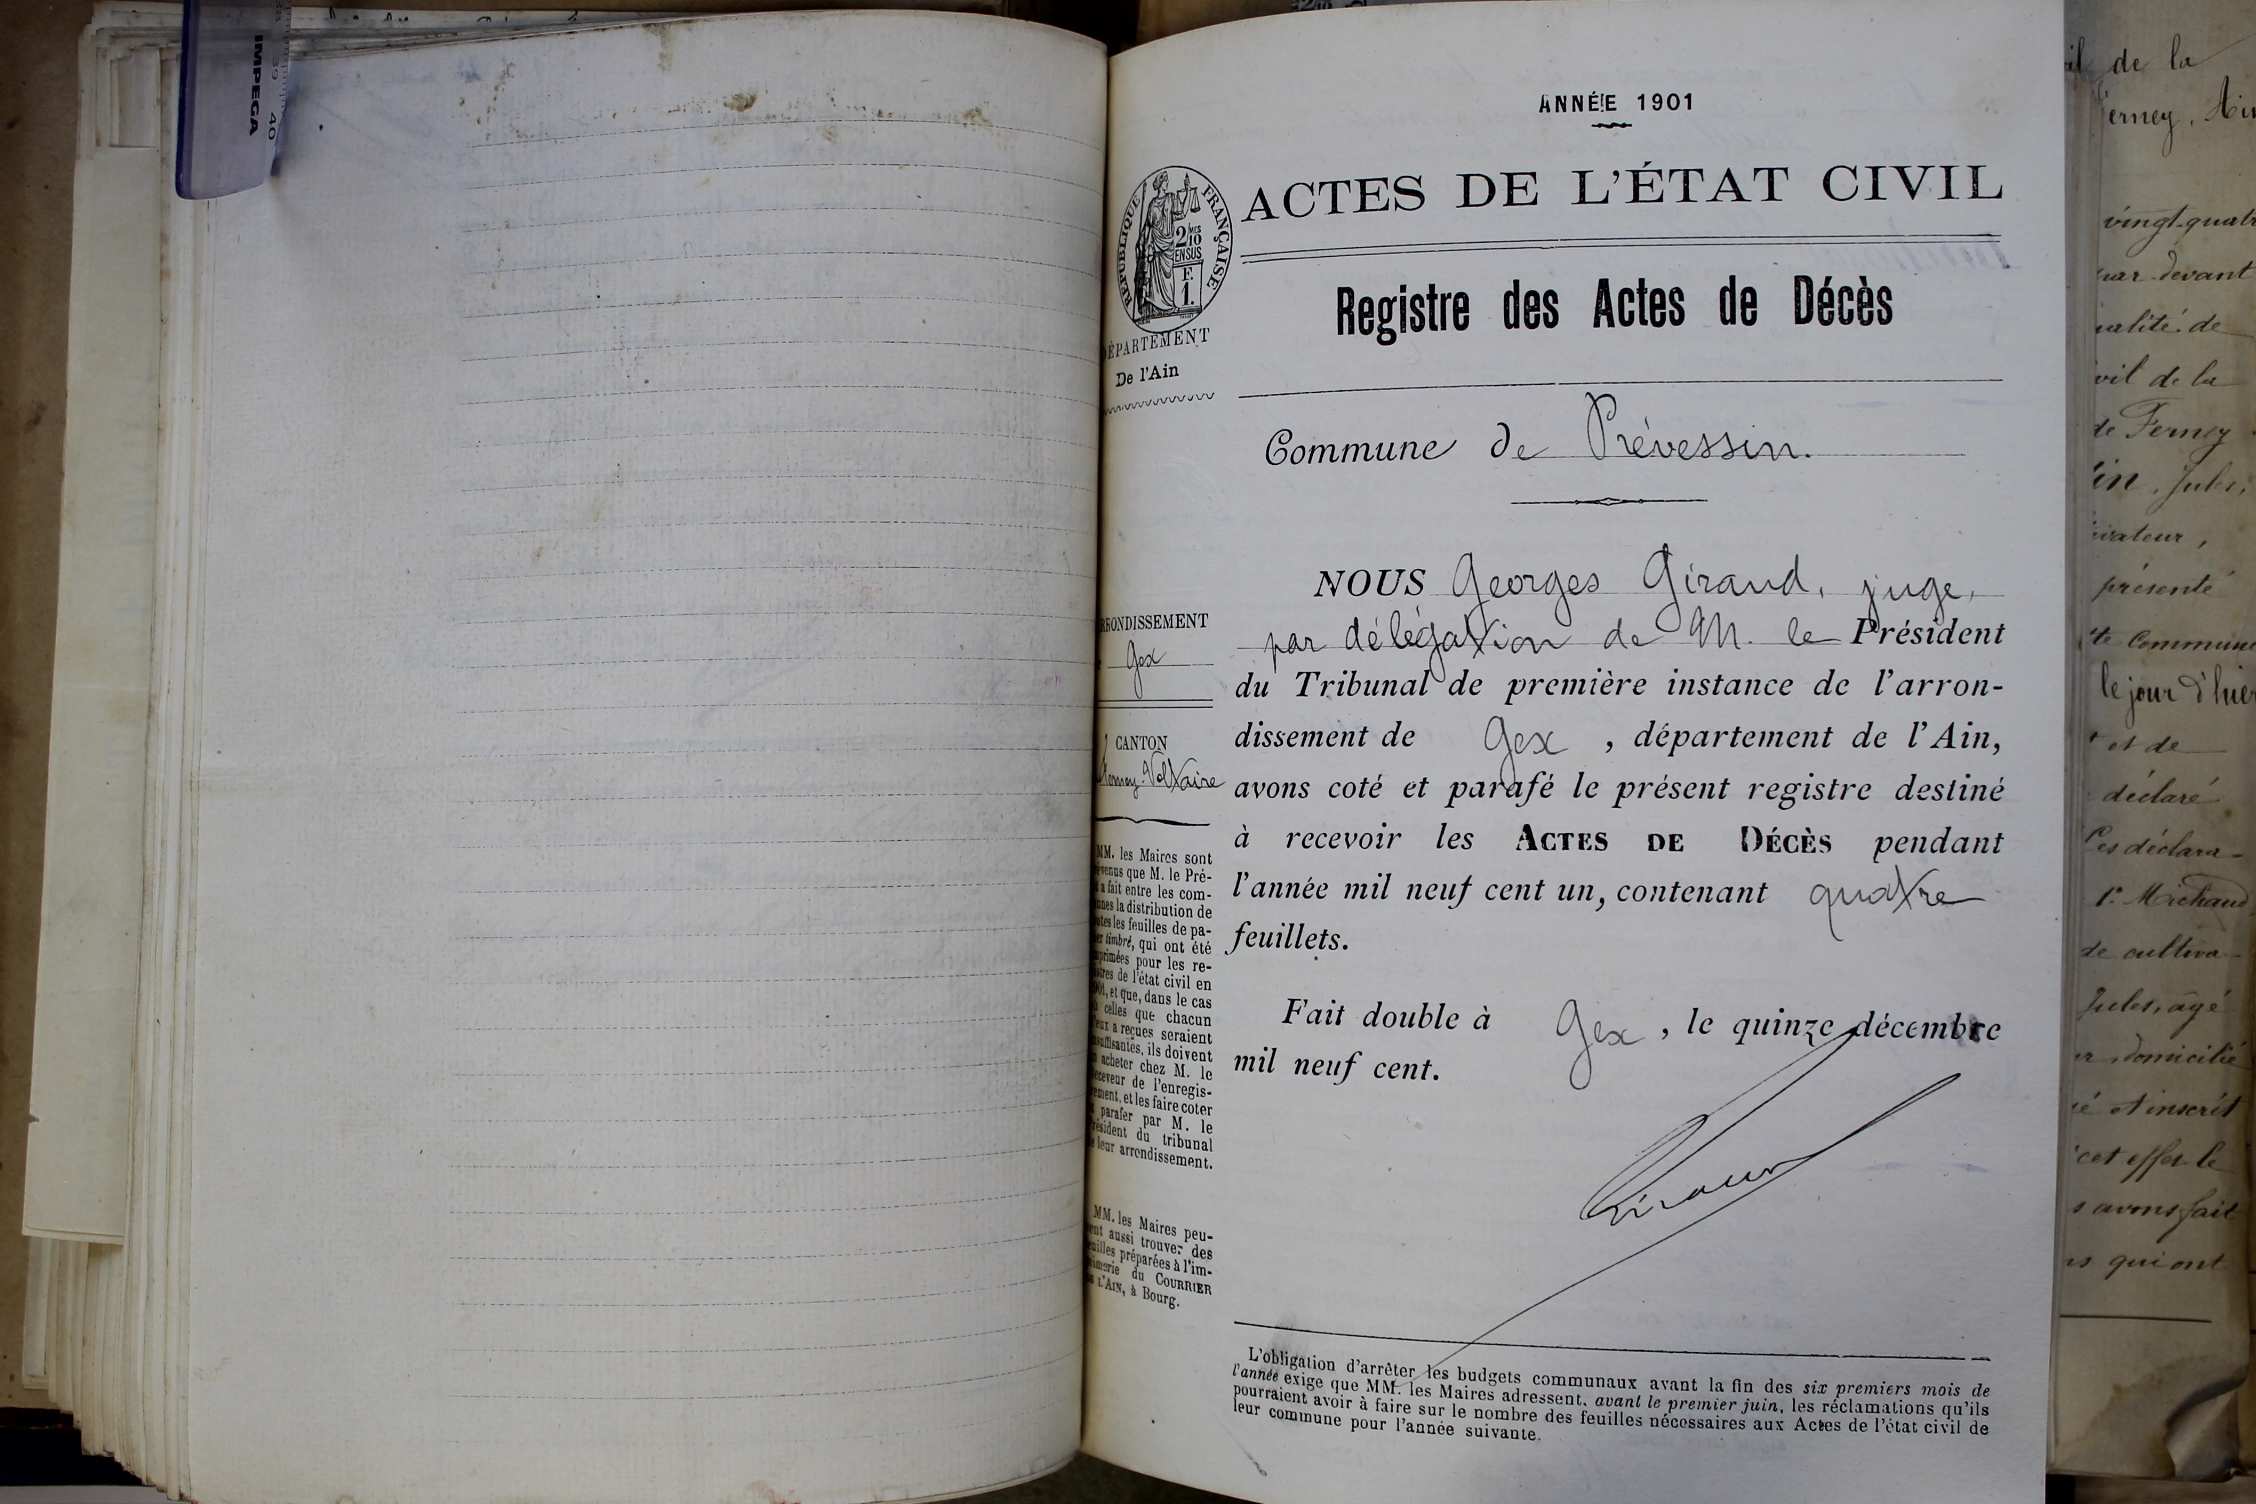 IMPEGA
39
40
ANNÉE 1901
ACTES DE L'ÉTAT CIVIL
RÉPUBLIQUE FRANÇAISE
2 MES
10
EN SUS
F.
1.
DÉPARTEMENT
De l'Ain
Registre des Actes de Décès
Commune de Prévessin.
ARRONDISSEMENT
Gex
CANTON
Ferney-Voltaire
MM. les Maires sont
prévenus que M. le Pré-
fet a fait entre les com-
munes la distribution de
toutes les feuilles de pa-
pier timbré, qui ont été
imprimées pour les re-
gistres de l'état civil en
1901, et que, dans le cas
où celles que chacun
d'eux a reçues seraient
insuffisantes, ils doivent
en acheter chez M. le
Receveur de l'enregis-
trement, et les faire coter
et parafer par M. le
Président du tribunal
de leur arrondissement.
MM. les Maires peu-
vent aussi trouver des
feuilles préparées à l'im-
primerie du COURRIER
DE L'AIN, à Bourg.
NOUS Georges Giraud, juge,
par délégation de M. le Président
du Tribunal de première instance de l'arron-
dissement de Gex, département de l'Ain,
avons coté et parafé le présent registre destiné
à recevoir les ACTES DE DÉCÈS pendant
l'année mil neuf cent un, contenant quatre
feuillets.
Fait double à Gex, le quinze décembre
mil neuf cent.
Giraud
L'obligation d'arrêter les budgets communaux avant la fin des six premiers mois de
l'année exige que MM. les Maires adressent, avant le premier juin, les réclamations qu'ils
pourraient avoir à faire sur le nombre des feuilles nécessaires aux Actes de l'état civil de
leur commune pour l'année suivante.
de la
vingt-quatr
devant
de
de la
de Ferney
Jules,
présenté
commune
le jour d'hier
et de
déclaré
déclara-
1° Michaud
de cultiva-
Jules, âgé
domicilié
et inscrit
cet effet le
avons fait
qui ont